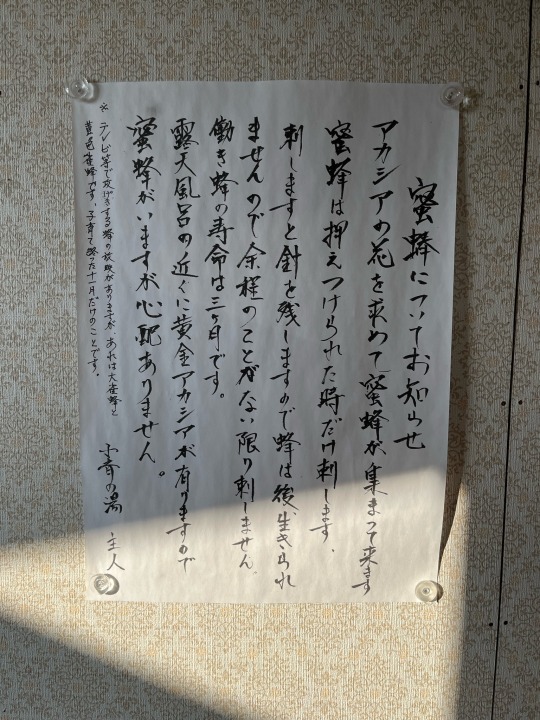 蜜蜂についてお知らせ
アカシアの花を求めて蜜蜂が集まって来ます
蜜蜂は押えつけられた時だけ刺します。
刺しますと針を残しますので蜂は後生きられ
ませんので余程のことがない限り刺しません。
働き蜂の寿命は三ヶ月です。
露天風呂の近くに黄金アカシアが有りますので
蜜蜂がいますが心配ありません。
の湯 主人
※ テレビ等で攻げきする蜂の放映がありますが、あれは大雀蜂と
黄色雀蜂です。子育て終った十一月だけのことです。